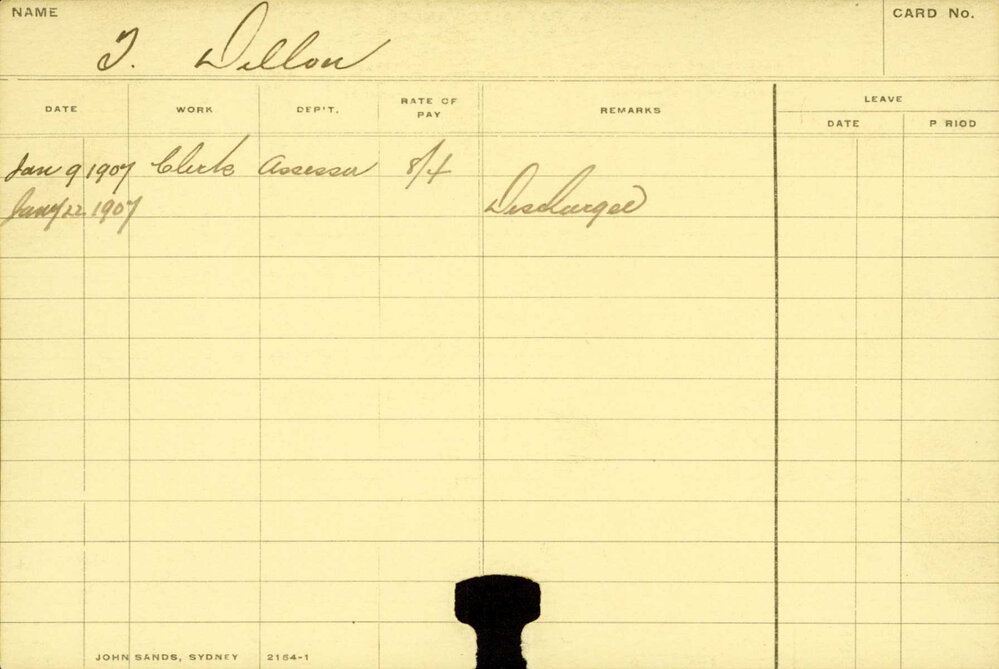 NAME
CARD No.
T. Dillon
DATE WORK DEP'T. RATE OF PAY REMARKS LEAVE
DATE P RIOD
Jan 9 1907 Clerk Assessor 8/4
Jany 22 1907 Discharged
JOHN SANDS, SYDNEY 2154-1